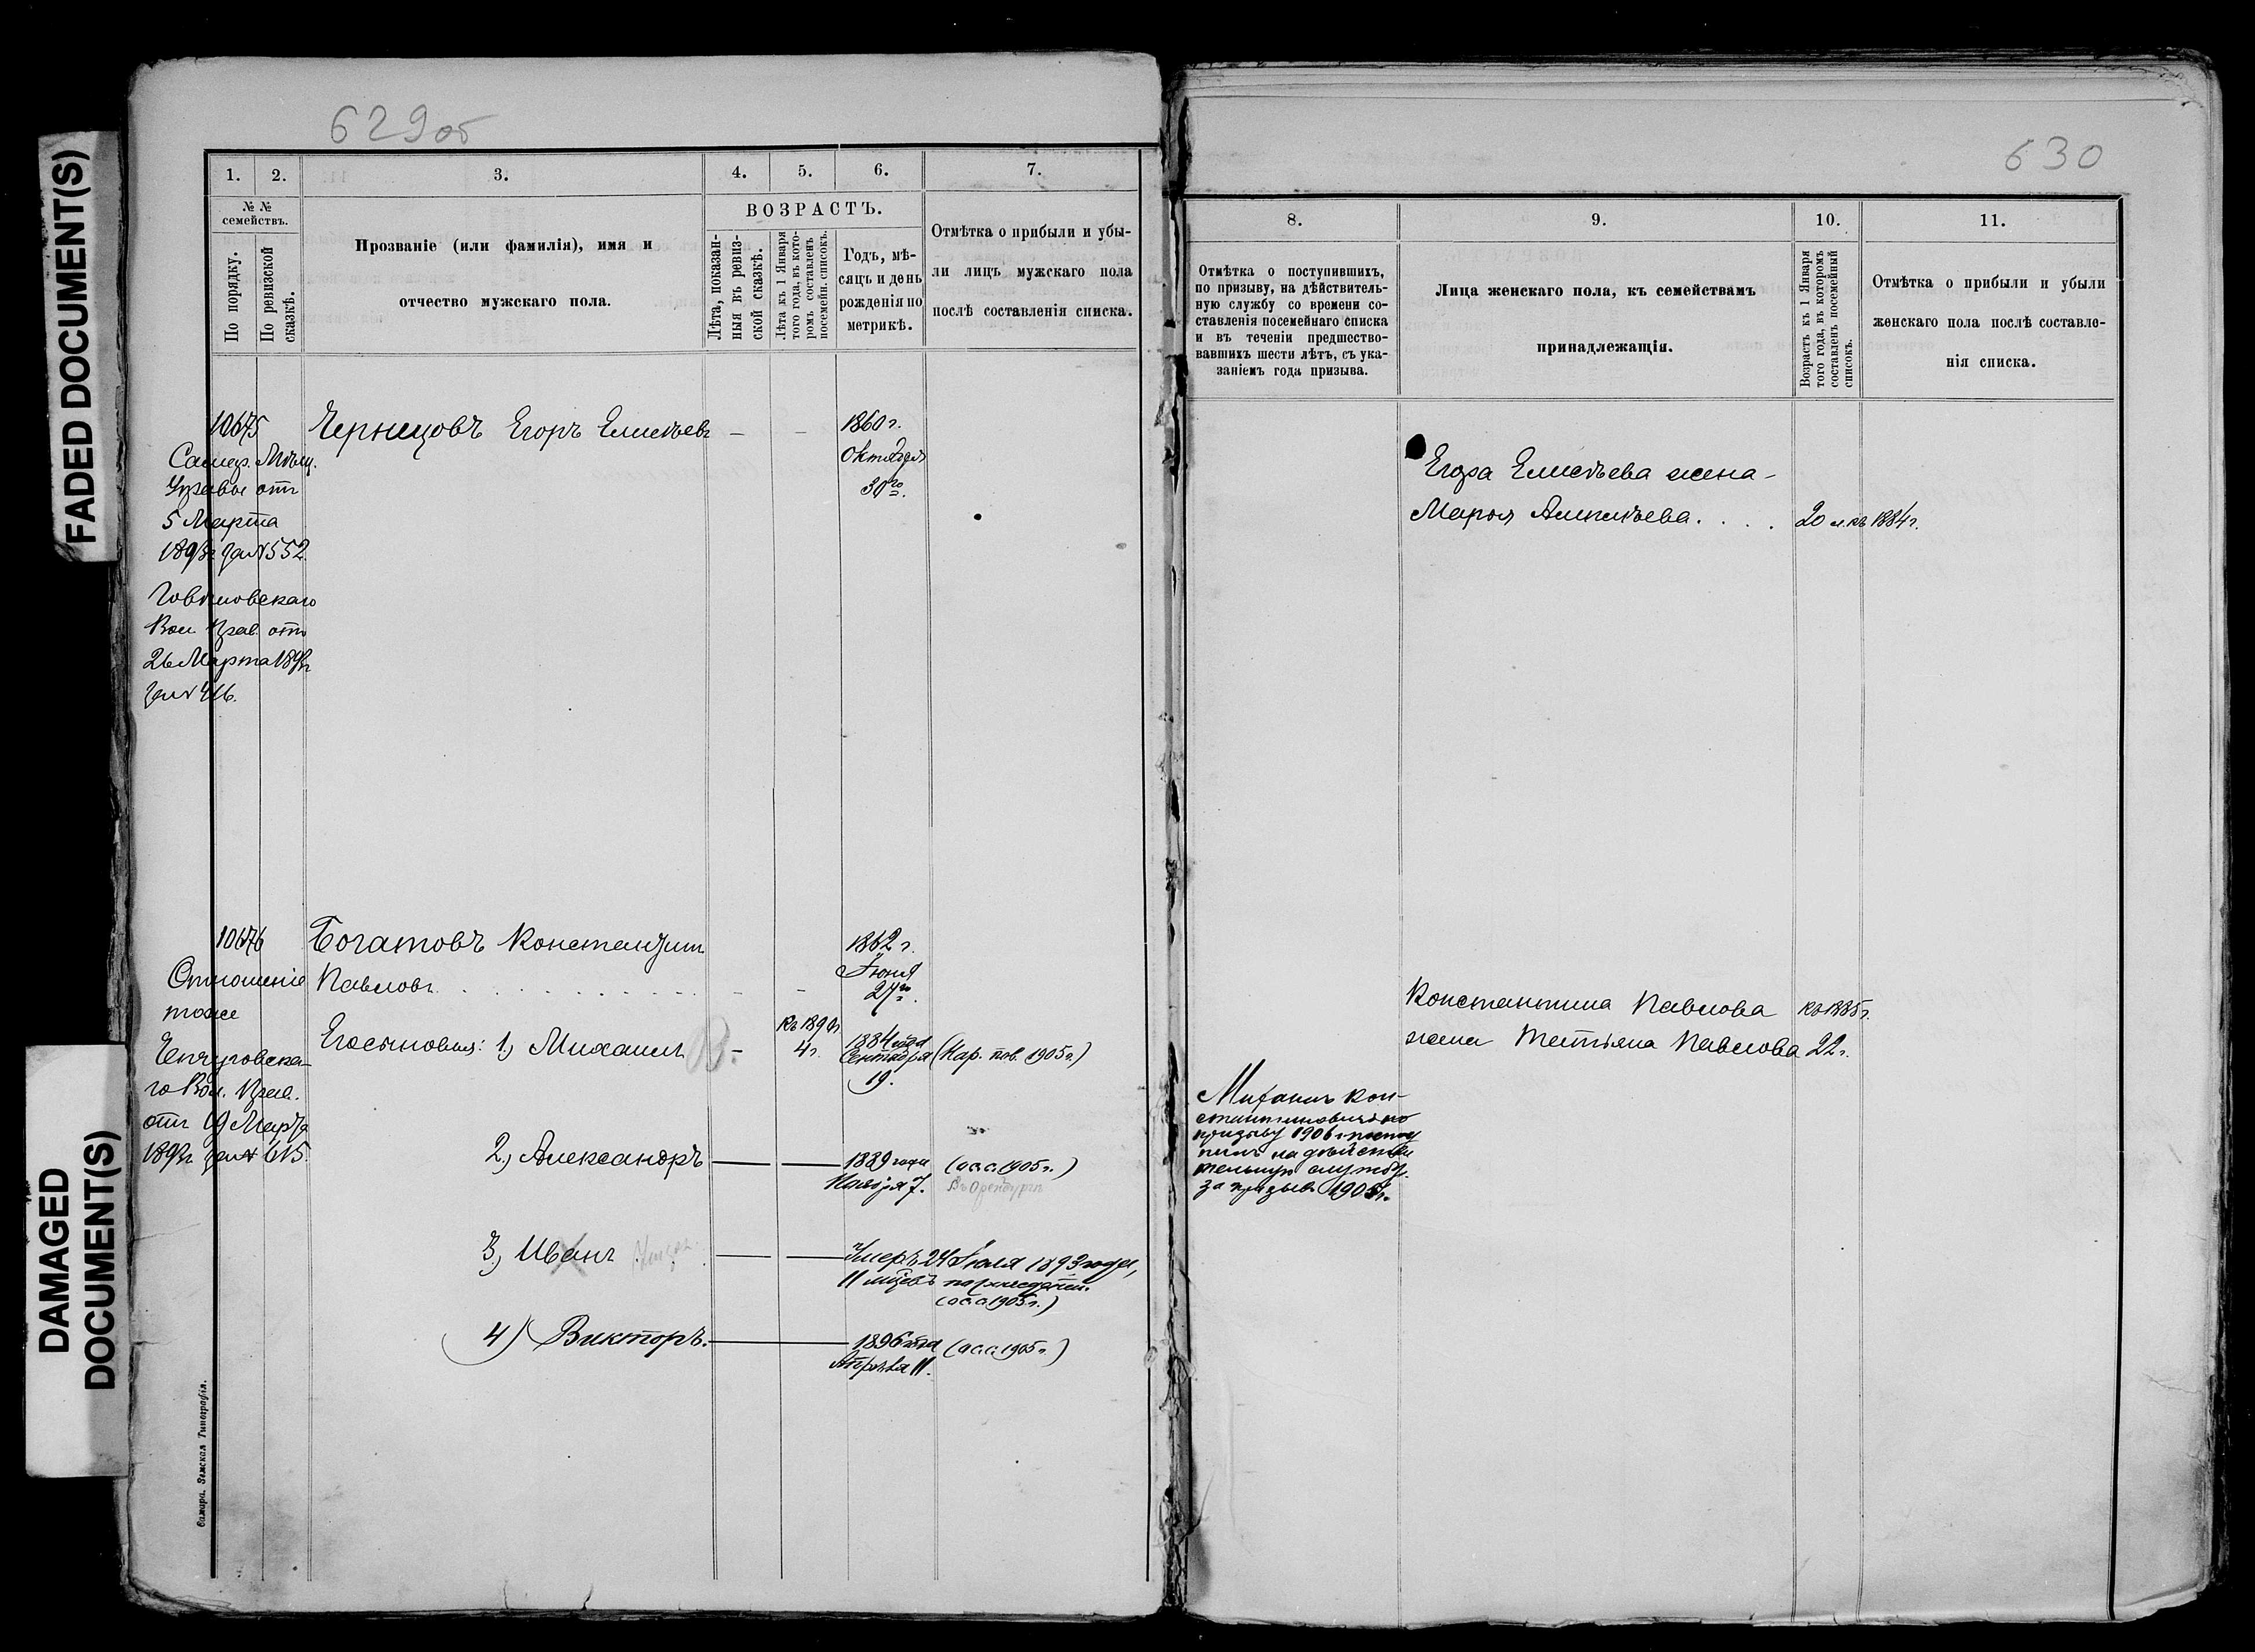 FADED DOCUMENT(S)
DAMAGED
DOCUMENT(S)
629об
1. 2. 3. 4. 5. 6. 7.
№ №
семействъ.
По порядку.
По ревизской
сказкѣ.
Прозваніе (или фамилія), имя и
отчество мужскаго пола.
ВОЗРАСТЪ.
Лѣта, показан-
ныя въ ревиз-
ской сказкѣ.
Лѣта къ 1 Января
того года, въ кото-
ромъ составленъ
посемейн. списокъ.
Годъ, мѣ-
сяцъ и день
рожденія по
метрикѣ.
Отмѣтка о прибыли и убы-
ли лицъ мужскаго пола
послѣ составленія списка.
10675 Чернецовъ Егоръ Елисѣевъ – – 1860 г.
Октября
30го.
Самар. Мѣщ.
Управы отъ
5 Марта
за № 552
Вол. Прав. отъ
26 Марта
за № 416.
10676 Богатовъ Константинъ 1862 г.
Павловъ – – Іюня
27го.
Отношеніе
тоже
го Вол. Прав.
отъ 19 Марта
за № 615.
Его сыновья: 1) Михаилъ – 4 г. 1884 года
Сентября
19.
(Нар. пов. 1905 г.)
2) Александръ 1889 года (о с.с. 1905 г.)
Ноября 7. Въ Оренбургѣ
3) Иванъ Умеръ 24 Іюля 1893 года,
(о с.с. 1905 г.)
4) Викторъ. 1896 года (о с.с. 1905 г.)
Апрѣля 11.
Самара. Земская Типографія.
630
8. 9. 10. 11.
Отмѣтка о поступившихъ,
по призыву, на дѣйствитель-
ную службу со времени со-
ставленія посемейнаго списка
и въ теченіи предшество-
вавшихъ шести лѣтъ, съ ука-
заніемъ года призыва.
Лица женскаго пола, къ семействамъ
принадлежащія.
Возрастъ къ 1 Января
того года, въ которомъ
составленъ посемейный
списокъ.
Отмѣтка о прибыли и убыли
женскаго пола послѣ составле-
нія списка.
Егора Елисѣева жена –
Марья Алексѣева. . . . 20 л. къ 1884 г.
Константина Павлова къ 1885 г.
жена Татьяна Павлова 22 г.
Михаилъ Кон-
стантиновичъ по
призыву 1906 г. посту
пилъ на дѣйстви
тельную службу
за призывъ 1905 г.